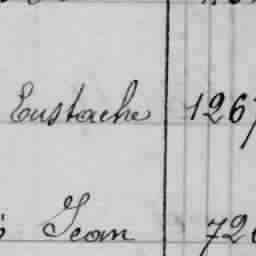 Eustache 1267
Jean 72